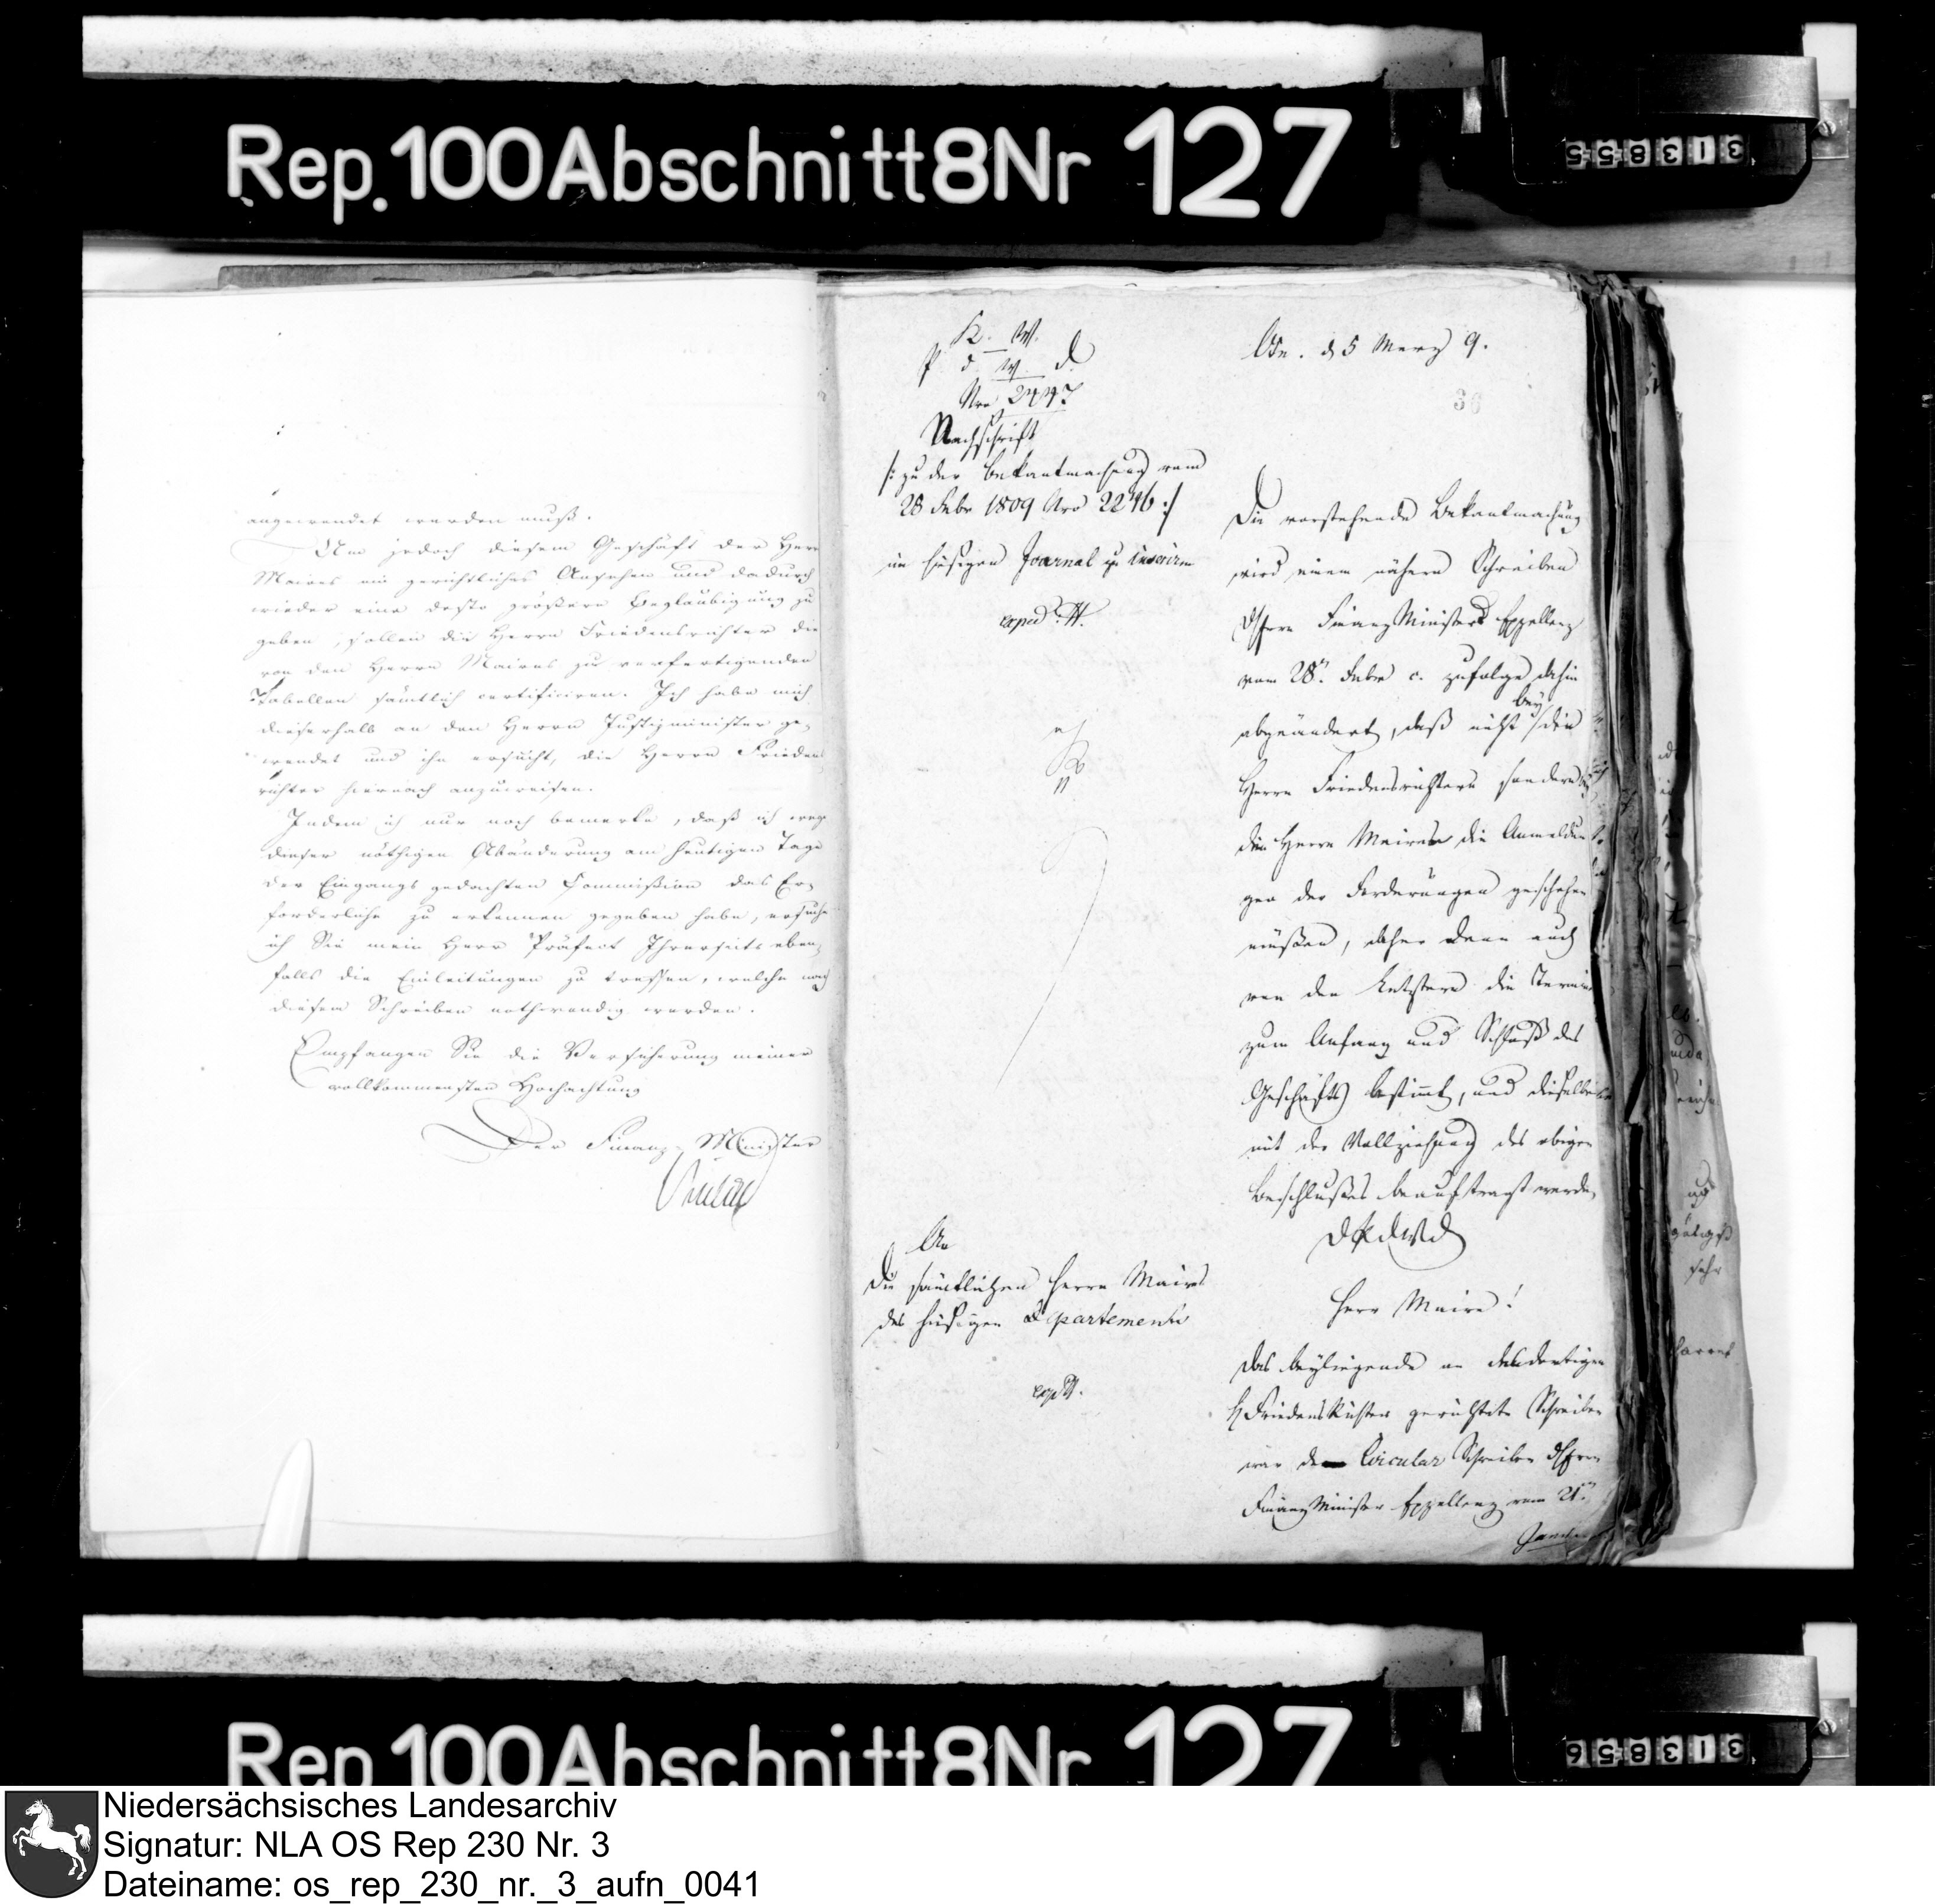 Rep. 100 Abschnitt 8 Nr 127
313855
angewendet werden muß.
Um jedoch diesem Geschäft der Herrn
Maires ein gerichtliches Ansehen und dadurch
wieder eine desto größere Beglaubigung zu
geben, sollen die Herrn Friedensrichter die
von den Herrn Maires zu verfertigenden
Tabellen sämtlich certificiren. Ich habe mich
dieserhalb an den Herrn Justizminister ge-
wendet und ihn ersucht, die Herrn Friedens
richter hiernach anzuweisen.
Indem ich nur noch bemerke, daß ich weg
dieser nöthigen Abänderung am heutigen Tage
der Eingangs gedachten Commißion das Er-
forderliche zu erkennen gegeben habe, ersuche
ich Sie mein Herr Präfect Ihrerseits eben-
falls die Einleitungen zu treffen, welche nach
diesem Schreiben nothwendig werden.
Empfangen Sie die Versicherung meiner
vollkommensten Hochachtung
Der Finanz-Minister
K. W.
P. d. W. d.
Nro 2447
Nachschrift
/: zu der Bekantmachung vom
28 Febr 1809 Nro 2246 :/
im hiesigen Journal zu inseriren
exped.
An
die sämtlichen Herrn Maires
des hiesigen Departements
Osn. d 5 Merz 9.
36
Die vorstehende Bekantmachung
wird einem nähern Schreiben
des Herrn Finanz Ministers Exzellenz
vom 28n. Febr c. zufolge dahin
abgeändert, daß nicht bey den
Herrn Friedensrichtern sondern bey
den Herrn Maires die Anmeldun
gen der Forderungen geschehen
müßen, daher denn auch
von den Letztern die Termine
zum Anfang und Schluß des
Geschäfts bestimt, und dieselben
mit der Vollziehung des obigen
Beschlußes beauftragt werden
D P d W d
Herr Maire!
Das beyliegende an den dortigen
H Friedens Richter gerichtete Schreiben
war dem Circular Schreiben des Herrn
Finanz Minister Exzellenz vom 21n.
Januar
Rep. 100 Abschnitt 8 Nr 127
313856
Niedersächsisches Landesarchiv
Signatur: NLA OS Rep 230 Nr. 3
Dateiname: os_rep_230_nr._3_aufn_0041